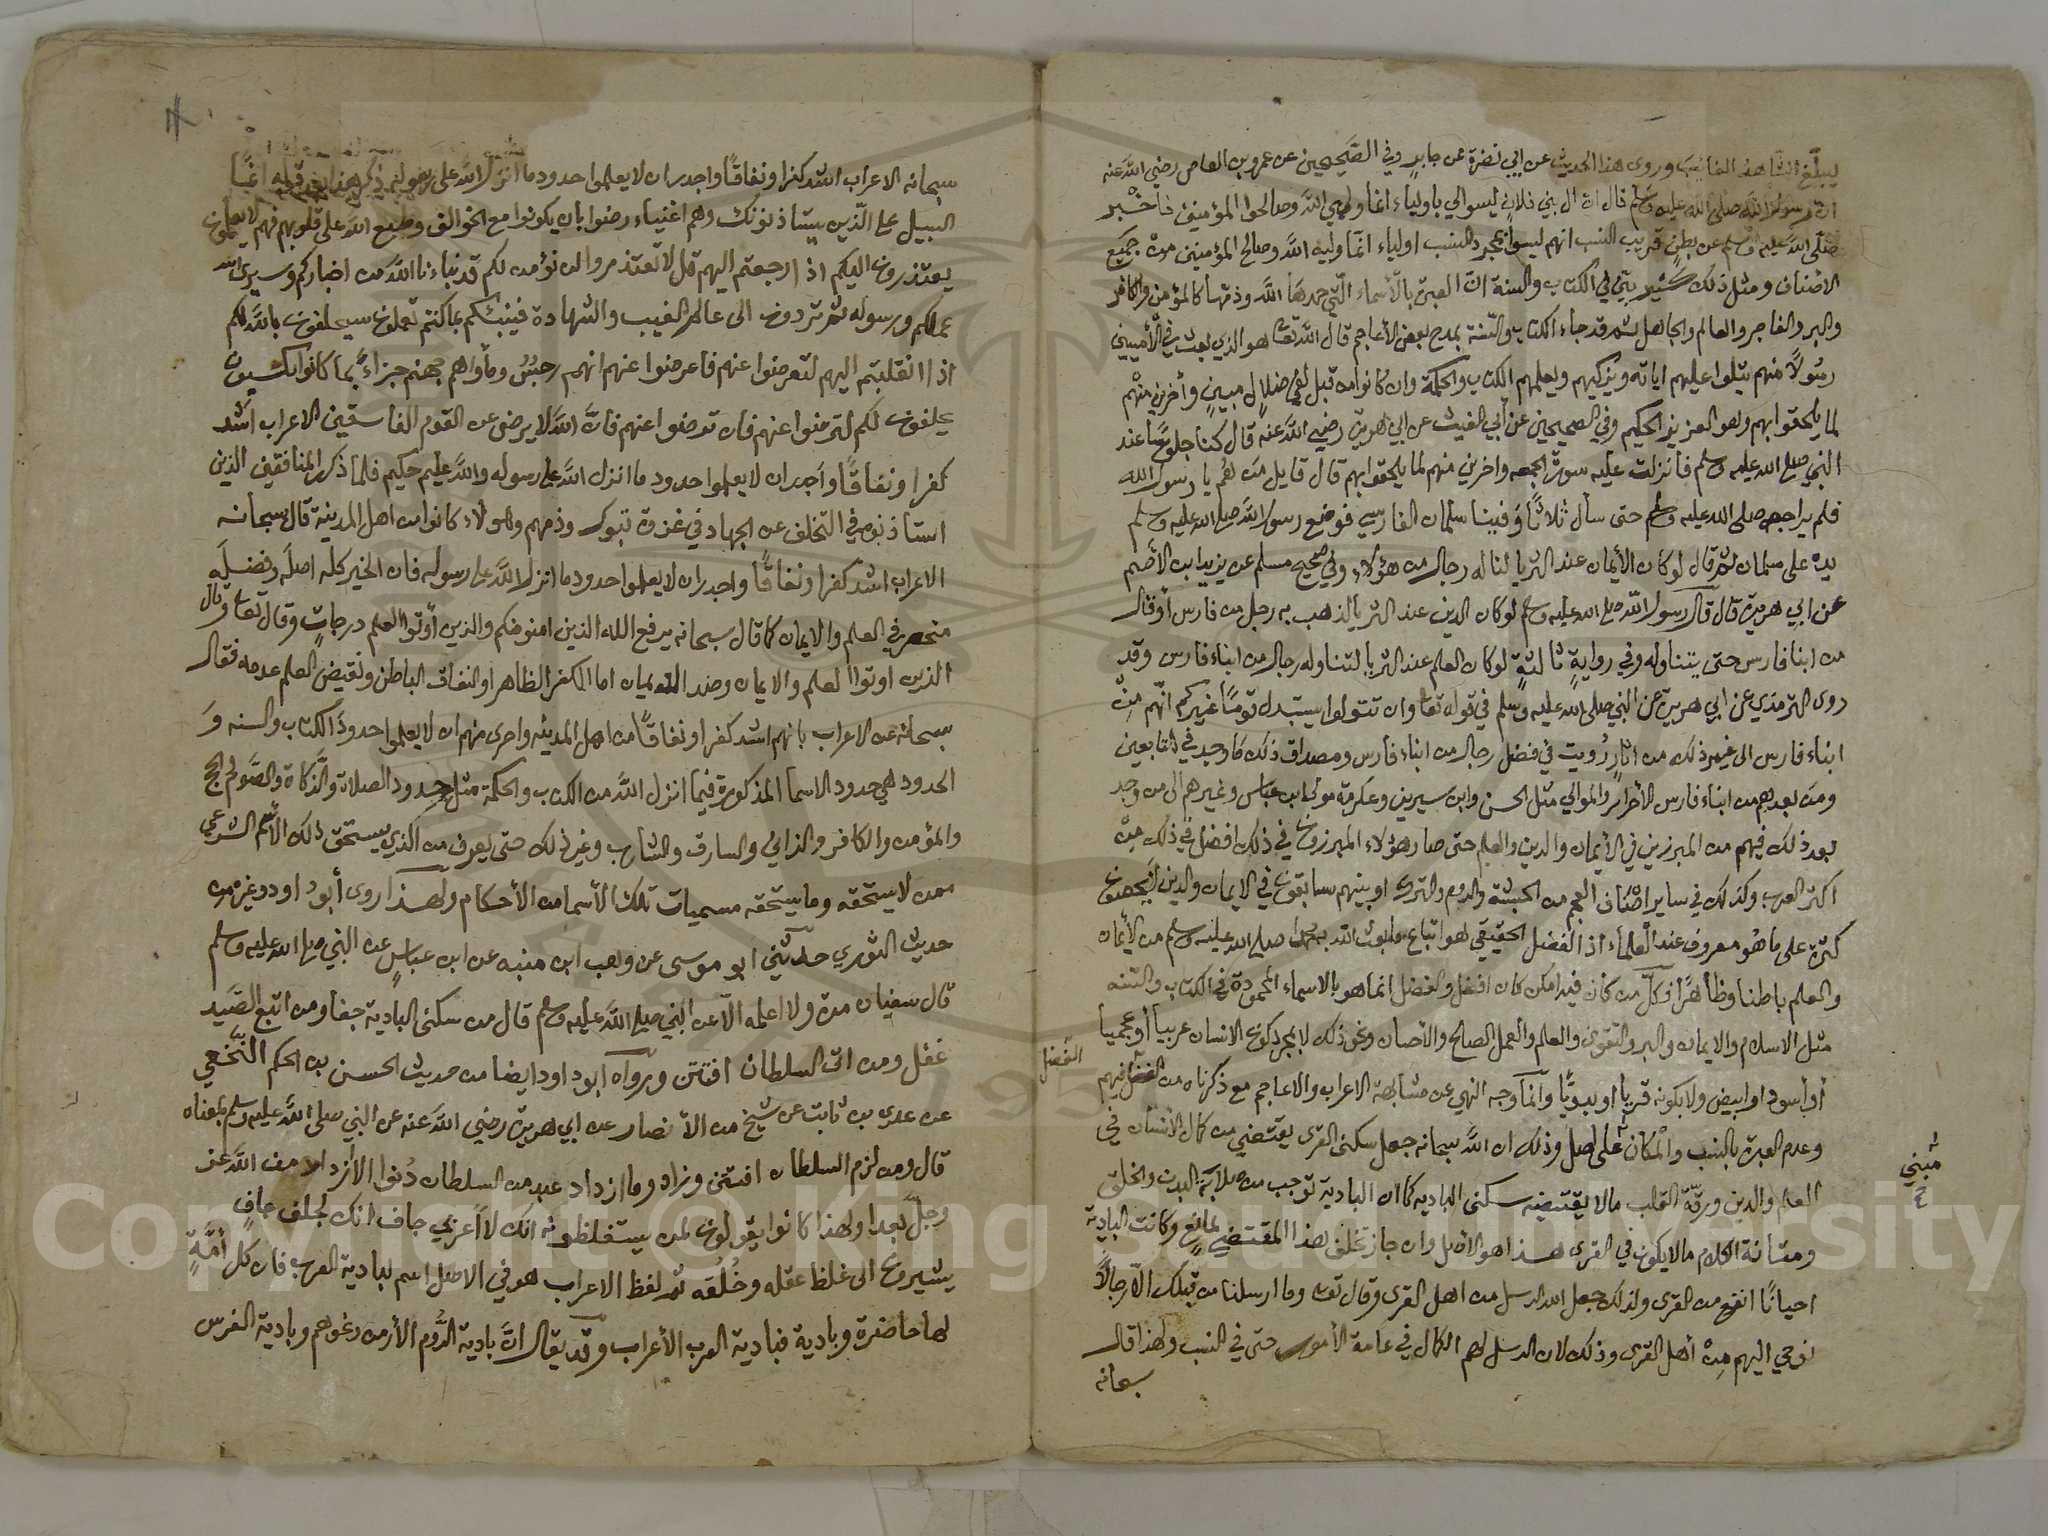 يبلّغ الشاهد الغائب وروى هذا الحديث عن ابي نضرة عن جابر وفي الصحيحين عن عمرو بن العاص رضي الله عنه
ان رسول الله صلى الله عليه وسلم قال ان ال بني فلان ليسوا لي باولياء انما ولي الله وصالحوا المؤمنين فاخبر
صلى الله عليه وسلم عن بطن قريب النسب انهم ليسوا بمجرد النسب اولياء انما وليه الله وصالح المؤمنين من جميع
الاصناف ومثل ذلك كثير بيّن في الكتاب والسنة ان العبرة بالأسماء التي حمدها الله وذمها كالمؤمن والكافر
والبر والفاجر والعالم والجاهل ثم قد جاء الكتاب والسنة بمدح بعض الأعاجم قال الله تعا هو الذي بعث في الأميين
رسولاً منهم يتلوا عليهم اياته ويزكيهم ويعلمهم الكتاب والحكمة وان كانوا من قبل لفي ضلال مبين وأخرين منهم
لما يلحقوا بهم وهو العزيز الحكيم وفي الصحيحين عن أبي الغيث عن ابي هريرة رضي الله عنه قال كنا جلوسًا عند
النبي صلى الله عليه وسلم فانزلت عليه سورة الجمعه واخرين منهم لما يلحقوا بهم قال قايل من هم يا رسول الله
فلم يراجعه صلى الله عليه وسلم حتى سأل ثلاثًا وفينا سلمان الفارسي فوضع رسول الله صلى الله عليه وسلم
يده على سلمان ثم قال لوكان الأيمان عند الثريا لناله رجال من هؤلاء وفي صحيح مسلم عن يزيد ابن الأصم
عن ابي هريرة قال قال رسول الله صلى الله عليه وسلم لوكان الدين عند الثريا لذهب به رجل من فارس أوقال
من ابنا فارس حتى يتناوله وفي رواية ثالثة لوكان العلم عند الثريا لتناوله رجال من ابناء فارس وقد
روى الترمذي عن ابي هريرة عن النبي صلى الله عليه وسلم في قوله تعا وان تتولوا يستبدل قومًا غيركم انهم من
ابناء فارس الى غير ذلك من اثار رُويت في فضل رجال من ابناء فارس ومصداق ذلك ما وجد في التابعين
ومن بعدهم من ابناء فارس الأحرار والموالي مثل الحسن وابن سيرين وعكرمة مولى ابن عباس وغيرهم الى من وجد
بعد ذلك فيهم من المبرزين في الأيمان والدين والعلم حتى صار هؤلاء المبرزون في ذلك افضل في ذلك من
اكثر العرب وكذلك في ساير اصناف العجم من الحبشة والروم والترك وبينهم سابقون في الايمان والدين لا يحصون
كثرة على ما هو معروف عند العلماء اذ الفضل الحقيقي هو اتباع ما بعث الله به محمدا صلى الله عليه وسلم من الأيمان
والعلم باطنا وظاهرًا فكل من كان فيه امكن كان افضل والفضل انما هو بالاسماء المحمودة في الكتاب والسنه
مثل الاسلام والايمان والبر والتقوى والعلم والعمل الصالح والأحسان ونحو ذلك لا بمجرد كون الانسان عربيا أو عجميا
أو أسود او ابيض ولا بكونه قريا أو بدويًا وانما وجه النهي عن مشابهة الاعراب والاعاجم مع ذكرناه من الفضل فيهم
الفضل
وعدم العبرة بالنسب والمكان على اصل وذلك ان الله سبحانه جعل سكنى القرى يقتضي من كمال الأنسان في
مبني
العلم والدين ورقّة القلب مالا يقتضيه سكنى الباديه كما ان البادية توجب من صلابة البدن والخلق
ومتانة الكلام مالا يكون في القرى هذا هو الاصل وان جاز تخلف هذا المقتضي لمانع وكانت البادية
احيانًا انفع من القرى ولذلك جعل الله الرسل من اهل القرى وقال تعا وما ارسلنا من قبلك الا رجالاً
نوحي اليهم من أهل القرى وذلك لان الرسل لهم الكمال في عامة الأمور حتى في النسب ولهذا قال
سبحانه
سبحانه الاعراب اشد كفرا ونفاقًا واجدر ان لا يعلموا حدود ما انزل الله على رسوله ذكر هذا بعد قوله انما
السبيل على الذين يستاذنونك وهم اغنياء رضوا بان يكونوا مع الخوالف وطبع الله على قلوبهم فهم لا يعلمون
يعتذرون اليكم اذا رجعتم اليهم قل لا تعتذروا لن نؤمن لكم قد نباءنا الله من اخباركم وسيرى الله
عملكم ورسوله ثم تردون الى عالم الغيب والشهادة فينبئكم بما كنتم تعملون سيحلفون بالله لكم
اذا انقلبتم اليهم لتعرضوا عنهم فاعرضوا عنهم انهم رجسٌ ومأواهم جهنم جزاءً بما كانوا يكسبون
يحلفون لكم لترضوا عنهم فان ترضوا عنهم فان الله لا يرضى عن القوم الفاسقين الاعراب اشد
كفرا ونفاقًا وأجدر ان لا يعلموا حدود ما انزل الله على رسوله والله عليم حكيم فلما ذكر المنافقين الذين
استاذنوه في التخلف عن الجهاد في غزوة تبوك وذمهم وهولاء كانوا من اهل المدينة قال سبحانه
الاعراب اشد كفرا ونفاقًا واجدر ان لا يعلموا حدود ما انزل الله على رسوله فان الخير كله اصله وفضله
منحصر في العلم والايمان كما قال سبحانه يرفع الله الذين امنوا منكم والذين أوتوا العلم درجات وقال تعا وقال
الذين اوتوا العلم والايمان وضد الايمان اما الكفر الظاهر او النفاق الباطن ونقيض العلم عدمه فقال
سبحانه عن الاعراب بانهم اشد كفرا ونفاقًا من اهل المدينه واحرى منهم ان لا يعلموا حدود الكتاب والسنه و
الحدود هي حدود الاسما المذكورة فيما انزل الله من الكتاب والحكمة مثل حدود الصلاة والزكاة والصوم والحج
والمؤمن والكافر والزاني والسارق والشارب وغير ذلك حتى يعرف من الذي يستحق ذلك الأسم الشرعي
ممن لا يستحقه وما يستحقه مسميات تلك الأسما من الأحكام ولهذا روى أبو داود وغيره من
حديث الثوري حدثني ابو موسى عن وهب ابن منبه عن ابن عباس عن النبي صلى الله عليه وسلم
قال سفيان مرة ولا اعلمه الا عن النبي صلى الله عليه وسلم قال من سكن البادية جفا ومن اتبع الصيد
غفل ومن اتى السلطان افتتن ورواه أبو داود ايضا من حديث الحسن بن الحكم النخعي
عن عدي بن ثابت عن شيخ من الأنصار عن ابي هريرة رضي الله عنه عن النبي صلى الله عليه وسلم بمعناه
قال ومن لزم السلطان افتتن وزاد وما ازداد عبد من السلطان دُنوا الا ازداد من الله عز
وجل بعدا ولهذا كانوا يقولون لمن يستغلظونه انك لأعرابي جاف انك لجلف جاف
يشيرون الى غلظ عقله وخُلُقه ثم لفظ الاعراب هو في الاصل اسم لبادية العرب فان كل أمّة
لها حاضرة وبادية فبادية العرب الأعراب وقد يقال ان بادية الروم الأرمن ونحوهم وبادية الفرس
Copyright © King Saud University
1957